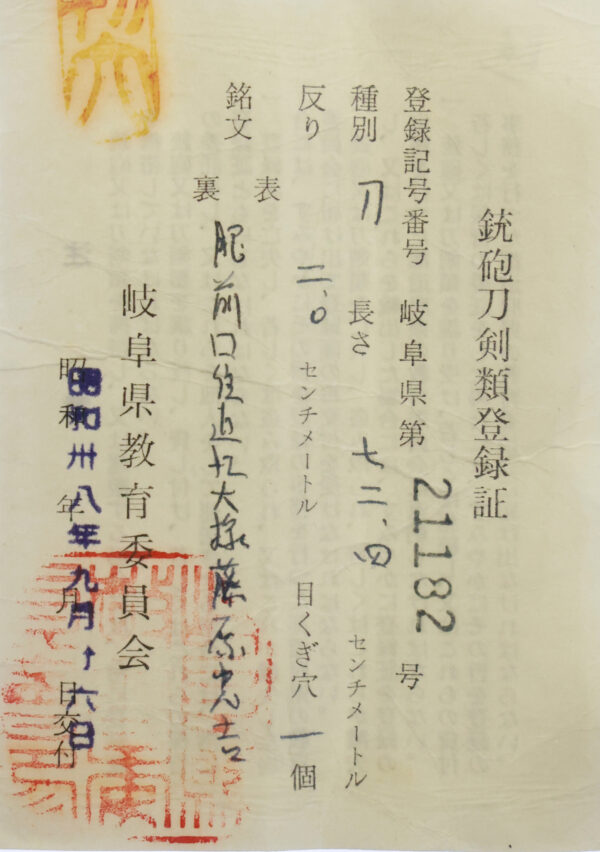 銃砲刀剣類登録証
登録記号番号 岐阜県第 21182 号
種別 刀 長さ 七二.四 センチメートル
反り 二.〇 センチメートル 目くぎ穴 一 個
銘文 表
裏 肥前口住近江大掾藤原忠吉
岐阜県教育委員会
昭和 年 月 日交付
昭和卅八年九月十六日